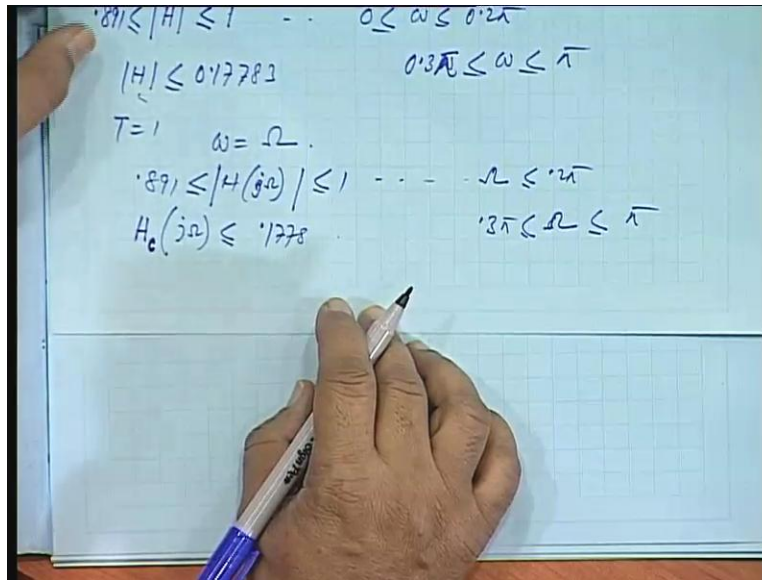 .891 ≤ |H| ≤ 1 .. 0 ≤ ω ≤ 0.2π
|H| ≤ 0.17783 0.3π ≤ ω ≤ π
T=1 ω = Ω.
.891 ≤ |H(jΩ)| ≤ 1 .... Ω ≤ .2π
Hc(jΩ) ≤ .1778 .3π ≤ Ω ≤ π